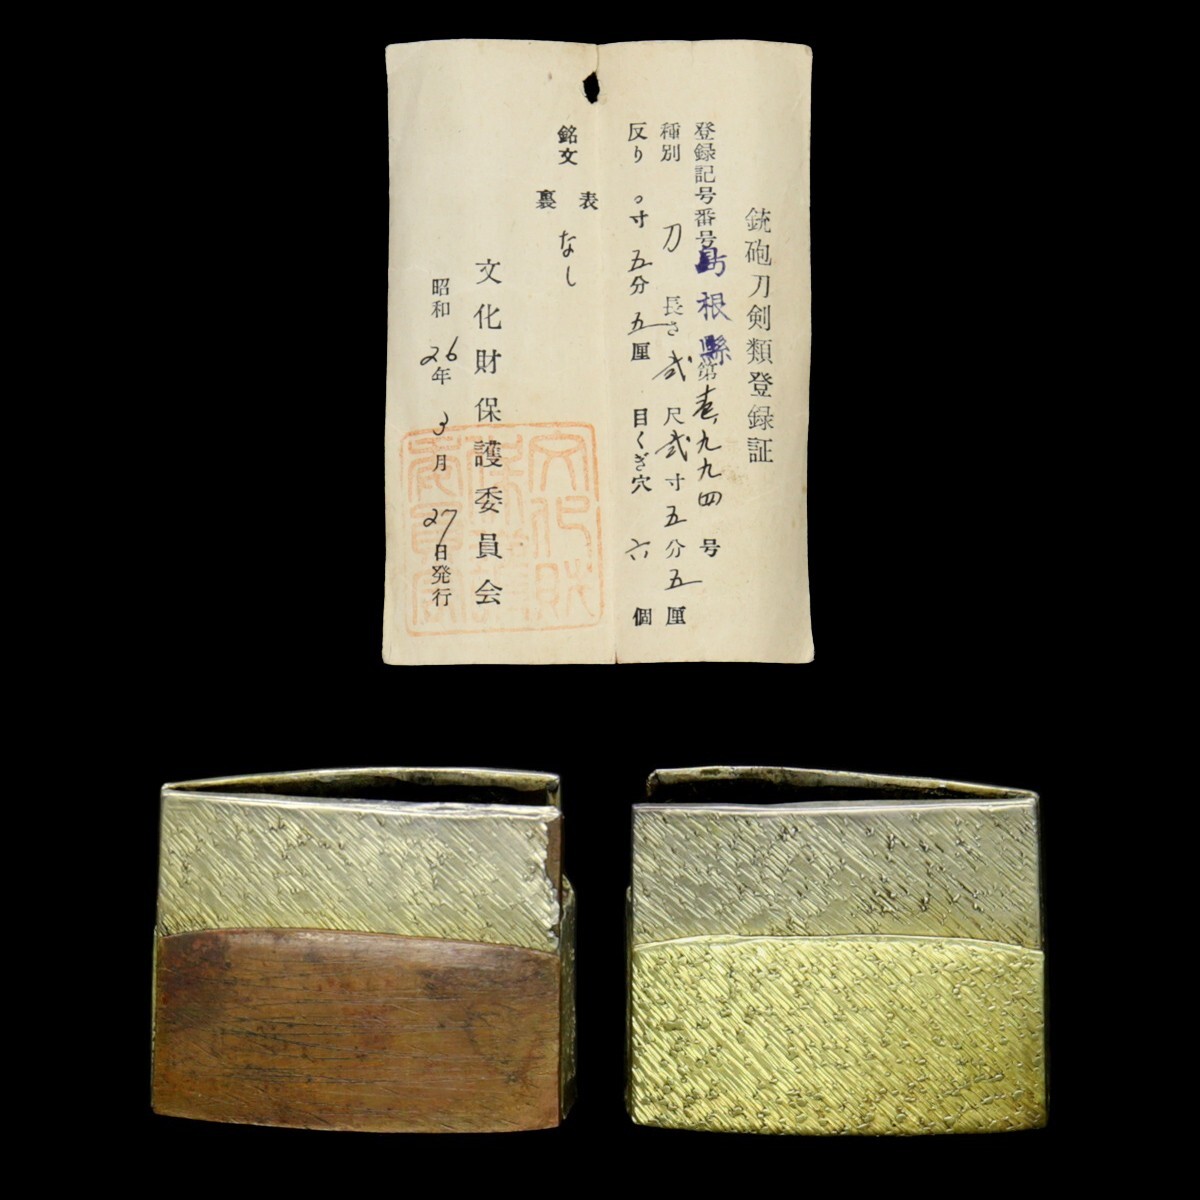 銃砲刀剣類登録証
登録記号番号島根縣第壱、九九四号
種別 刀 長さ 弐尺弐寸五分五厘
反り 〇寸五分五厘 目くぎ穴 六個
銘文 表
裏 なし
文化財保護委員会
昭和26年3月27日発行
文化財
保護
委員会